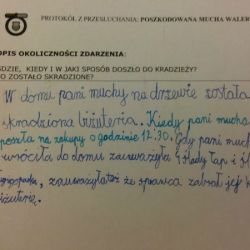 PROTOKÓŁ Z PRZESŁUCHANIA: POSZKODOWANA MUCHA WALER
OPIS OKOLICZNOŚCI ZDARZENIA:
GDZIE, KIEDY I W JAKI SPOSÓB DOSZŁO DO KRADZIEŻY?
CO ZOSTAŁO SKRADZIONE?
W domu pani muchy na drzewie została
skradziona biżuteria. Kiedy pani mucha
poszła na zakupy o godzinie 12.30. Gdy pani much
wróciła do domu zauważyła ślady łap i
zauważyła też że sprawca zabrał jej
biżuterię.